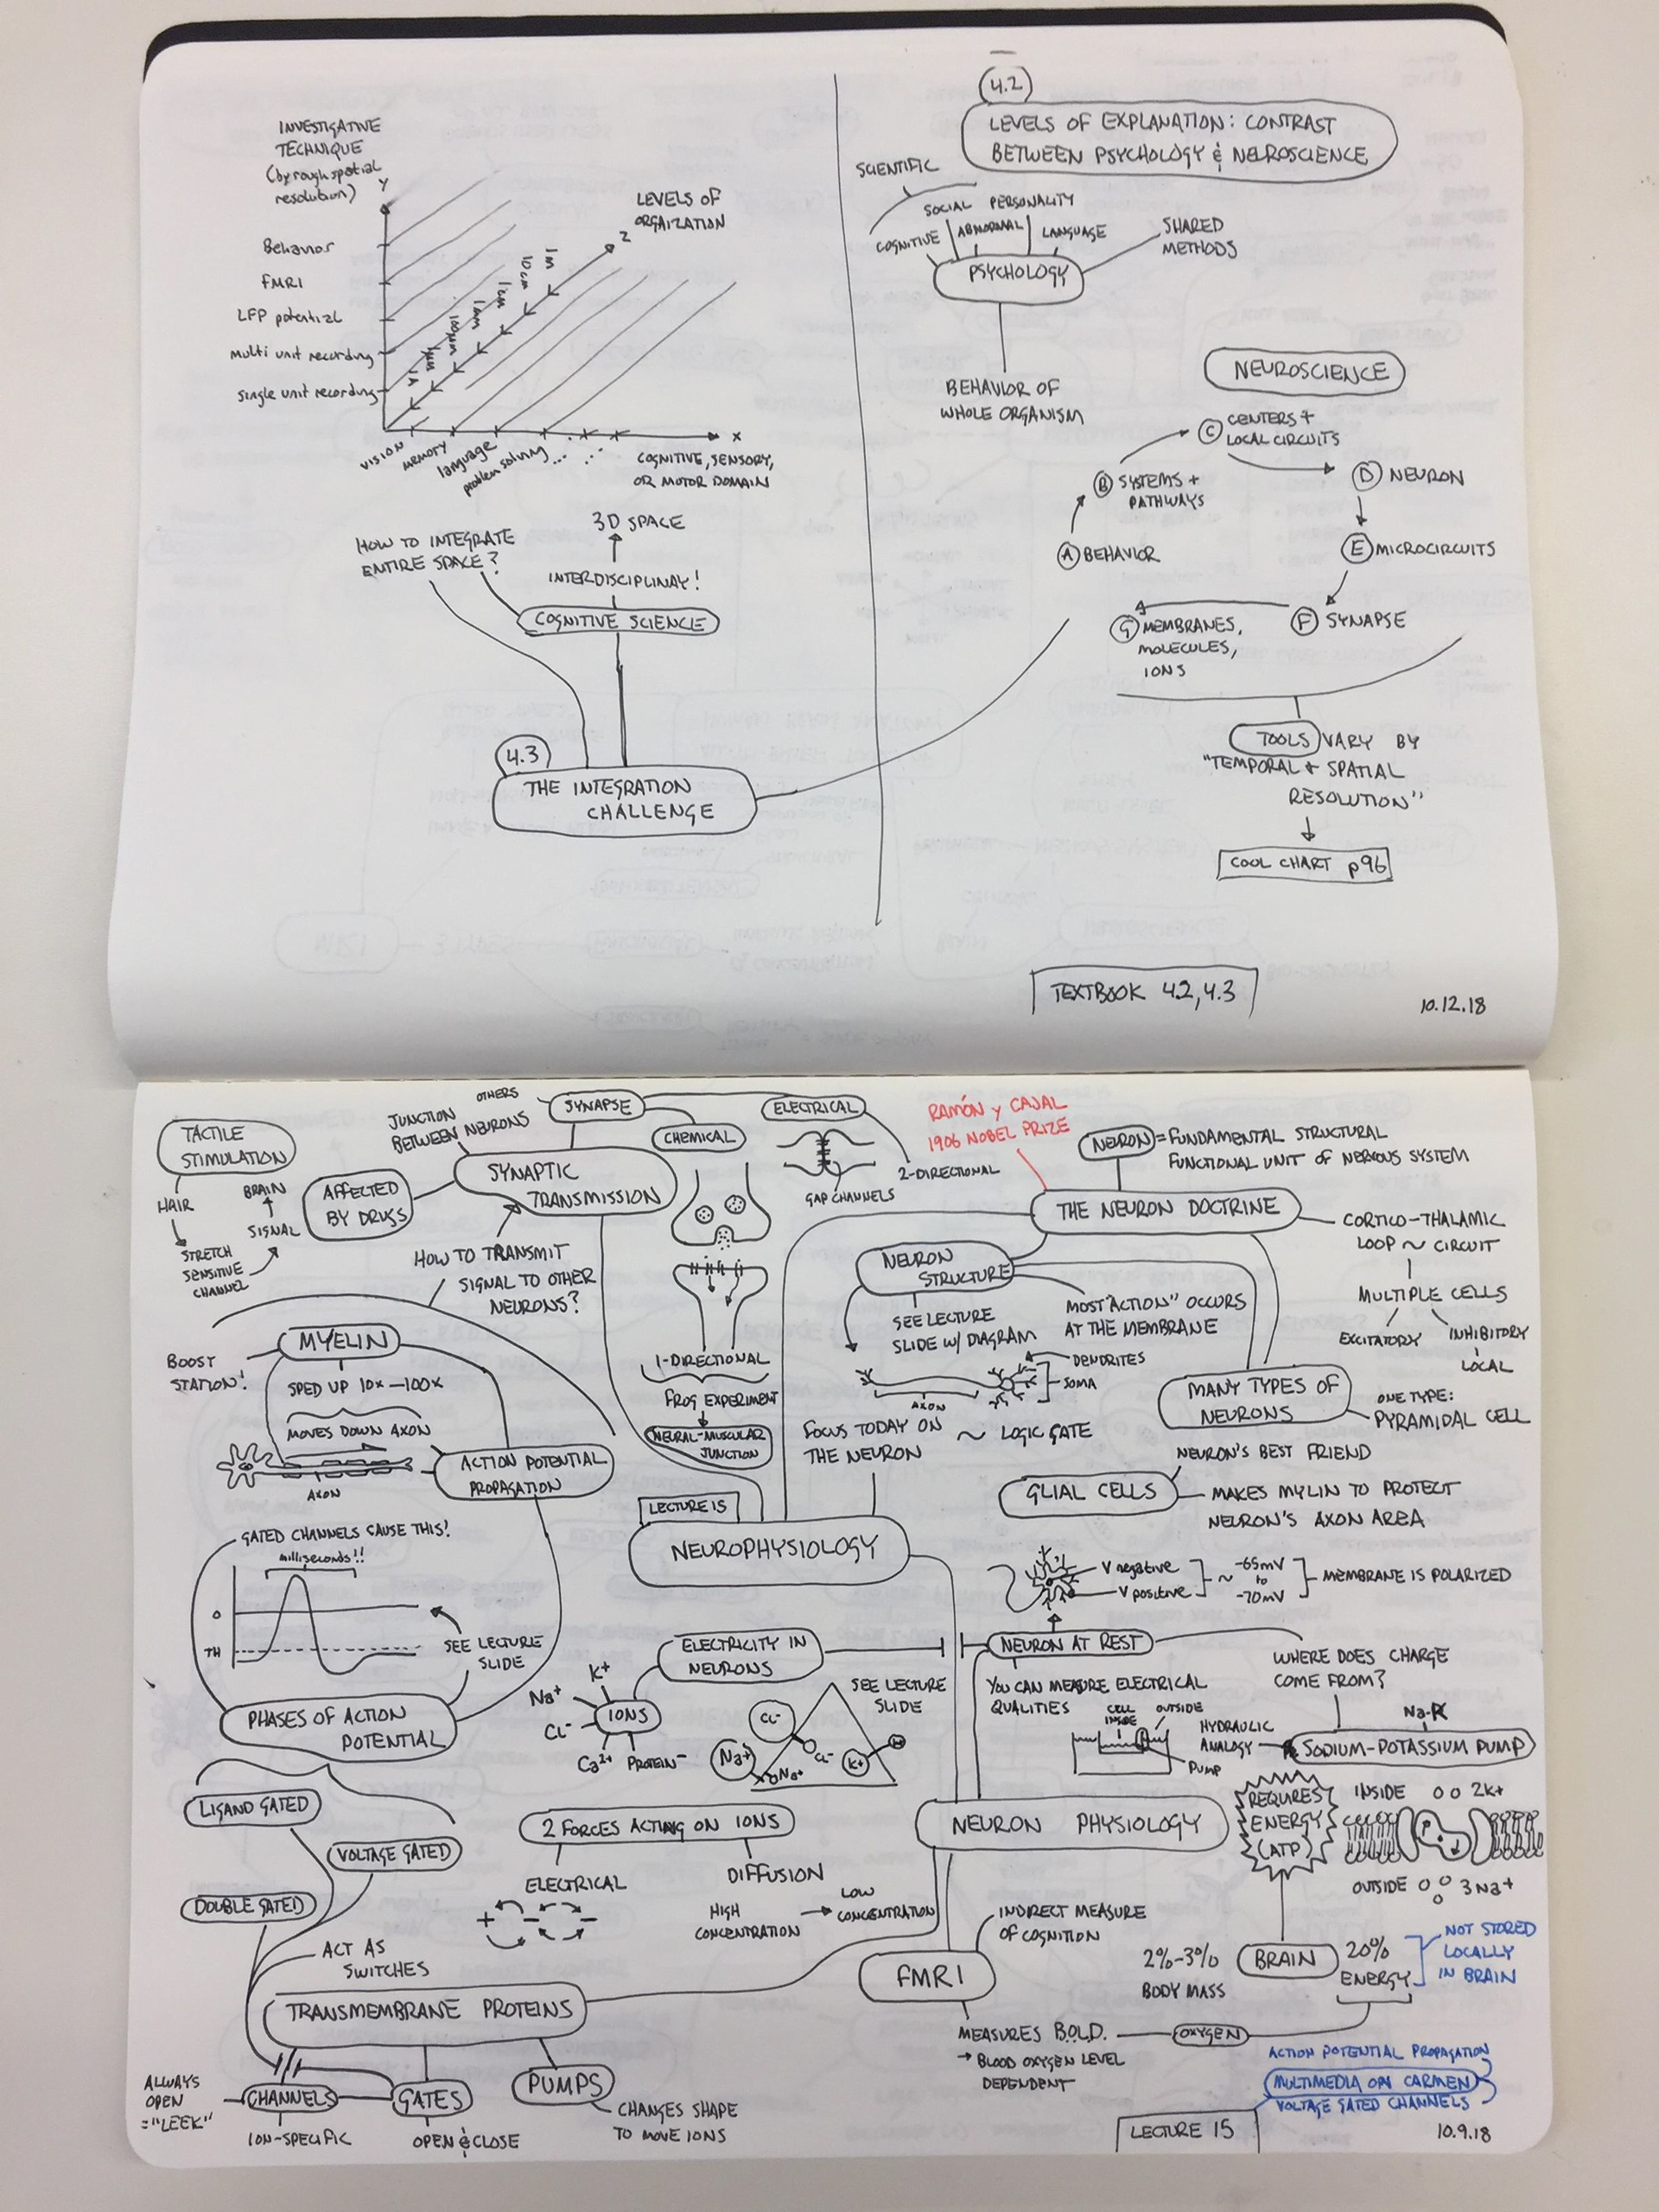 INVESTIGATIVE
TECHNIQUE
(by rough spatial
resolution)
Y
Behavior
FMRI
LFP potential
multi unit recording
single unit recording
LEVELS OF
ORGAIZATION
Z
1m
10cm
1cm
1mm
100µm
1µm
1Å
X
vision
memory
language
problem solving
...
...
COGNITIVE, SENSORY,
OR MOTOR DOMAIN
3D SPACE
HOW TO INTEGRATE
ENTIRE SPACE?
INTERDISCIPLINAY!
COGNITIVE SCIENCE
4.3
THE INTEGRATION
CHALLENGE
4.2
LEVELS OF EXPLANATION: CONTRAST
BETWEEN PSYCHOLOGY & NEUROSCIENCE
SCIENTIFIC
SOCIAL PERSONALITY
COGNITIVE ABNORMAL LANGUAGE
SHARED
METHODS
PSYCHOLOGY
BEHAVIOR OF
WHOLE ORGANISM
NEUROSCIENCE
C CENTERS +
LOCAL CIRCUITS
B SYSTEMS +
PATHWAYS
D NEURON
A BEHAVIOR
E MICROCIRCUITS
G MEMBRANES,
MOLECULES,
IONS
F SYNAPSE
TOOLS VARY BY
"TEMPORAL & SPATIAL
RESOLUTION"
COOL CHART p96
TEXTBOOK 4.2, 4.3
10.12.18
TACTILE
STIMULATION
HAIR
STRETCH
SENSITIVE
CHANNEL
SIGNAL
BRAIN
AFFECTED
BY DRUGS
JUNCTION
BETWEEN NEURONS
OTHERS
SYNAPSE
SYNAPTIC
TRANSMISSION
CHEMICAL
ELECTRICAL
GAP CHANNELS
2-DIRECTIONAL
HOW TO TRANSMIT
SIGNAL TO OTHER
NEURONS?
1-DIRECTIONAL
FROG EXPERIMENT
NEURAL-MUSCULAR
JUNCTION
RAMÓN y CAJAL
1906 NOBEL PRIZE
NEURON = FUNDAMENTAL STRUCTURAL
FUNCTIONAL UNIT OF NERVOUS SYSTEM
THE NEURON DOCTRINE
CORTICO-THALAMIC
LOOP ~ CIRCUIT
MULTIPLE CELLS
EXCITATORY
INHIBITORY
LOCAL
NEURON
STRUCTURE
SEE LECTURE
SLIDE W/ DIAGRAM
MOST "ACTION" OCCURS
AT THE MEMBRANE
DENDRITES
SOMA
AXON
FOCUS TODAY ON
THE NEURON
~ LOGIC GATE
MANY TYPES OF
NEURONS
ONE TYPE:
PYRAMIDAL CELL
MYELIN
BOOST
STATION!
SPED UP 10x-100x
MOVES DOWN AXON
AXON
ACTION POTENTIAL
PROPAGATION
GLIAL CELLS
NEURON'S BEST FRIEND
MAKES MYLIN TO PROTECT
NEURON'S AXON AREA
LECTURE 15
NEUROPHYSIOLOGY
GATED CHANNELS CAUSE THIS!
milliseconds!!
0
TH
SEE LECTURE
SLIDE
PHASES OF ACTION
POTENTIAL
V negative
V positive
~ -65mV
to
-70mV
MEMBRANE IS POLARIZED
NEURON AT REST
ELECTRICITY IN
NEURONS
IONS
K+
Na+
Cl-
Ca2+
PROTEIN-
SEE LECTURE
SLIDE
Cl-
Cl-
Na+
Na+
K+
YOU CAN MEASURE ELECTRICAL
QUALITIES
CELL
INSIDE
OUTSIDE
PUMP
HYDRAULIC
ANALOGY
WHERE DOES CHARGE
COME FROM?
Na-K
SODIUM-POTASSIUM PUMP
REQUIRES
ENERGY
(ATP)
INSIDE 2K+
OUTSIDE 3Na+
LIGAND GATED
VOLTAGE GATED
DOUBLE GATED
2 FORCES ACTING ON IONS
ELECTRICAL
+ - -
DIFFUSION
HIGH
CONCENTRATION
LOW
CONCENTRATION
NEURON PHYSIOLOGY
ACT AS
SWITCHES
TRANSMEMBRANE PROTEINS
FMRI
INDIRECT MEASURE
OF COGNITION
2%-3%
BODY MASS
BRAIN
20%
ENERGY
NOT STORED
LOCALLY
IN BRAIN
MEASURES B.O.L.D.
→ BLOOD OXYGEN LEVEL
DEPENDENT
OXYGEN
ALWAYS
OPEN
="LEEK"
CHANNELS
ION-SPECIFIC
GATES
OPEN & CLOSE
PUMPS
CHANGES SHAPE
TO MOVE IONS
ACTION POTENTIAL PROPAGATION
MULTIMEDIA ON CARMEN
VOLTAGE GATED CHANNELS
LECTURE 15
10.9.18